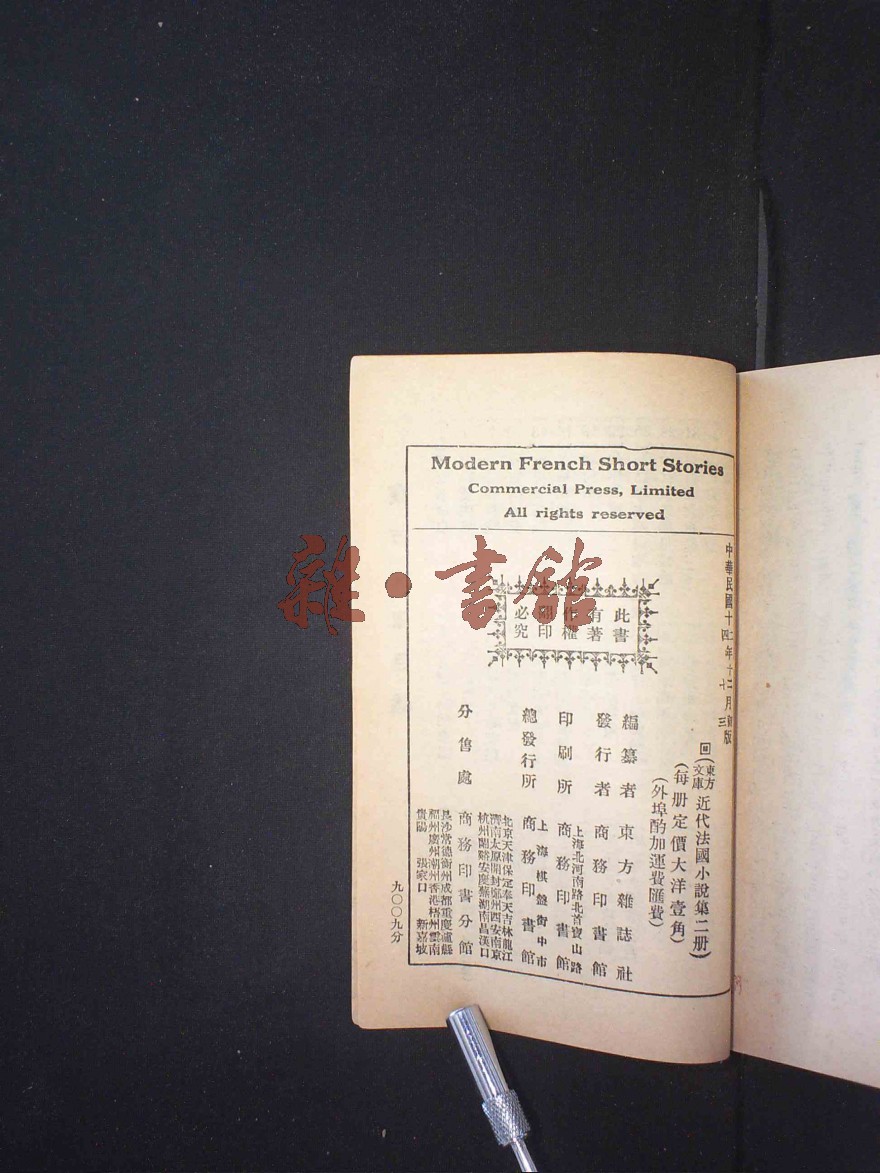 Modern French Short Stories
Commercial Press, Limited
All rights reserved
中華民國十二年十二月初版
四 十七 三
回(東方文庫)近代法國小說集二册)
(每册定價大洋壹角)
(外埠酌加運費匯費)
此書
有著
作權
翻印
必究
編纂者 東方雜誌社
發行者 商務印書館
上海北河南路北首寶山路
印刷所 商務印書館
上海棋盤街中市
總發行所 商務印書館
北京天津保定奉天吉林龍江
濟南太原開封鄭州西安南京
杭州蘭谿安慶蕪湖南昌漢口
分售處 商務印書分館
長沙常德衡州成都重慶瀘縣
福州廣州潮州香港梧州雲南
貴陽 張家口 新嘉坡
九〇〇九分
雜·書館